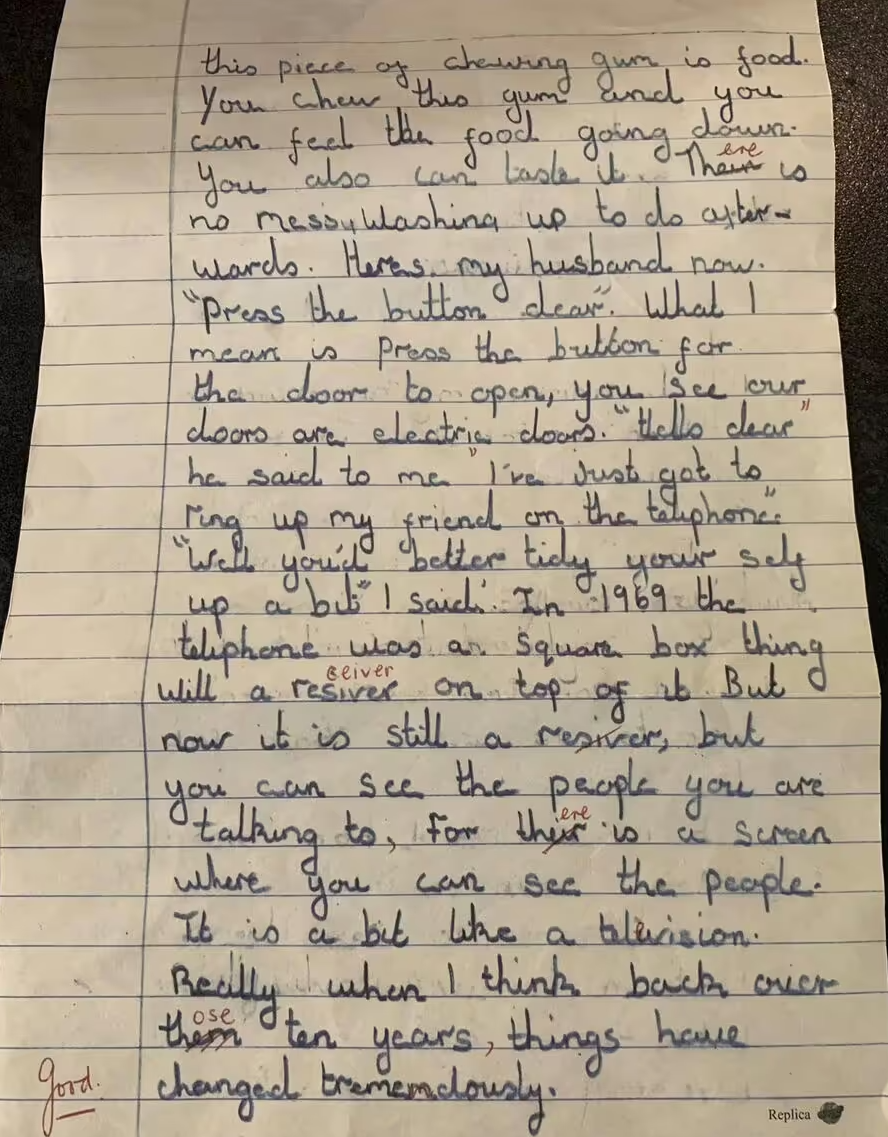 this piece of chewing gum is food.
You chew this gum and you
can feel the food going down.
ere
You also can taste it. Their is
no messy washing up to do after-
wards. Heres my husband now.
"Press the button dear". What I
mean is press the button for
the door to open, you see our
doors are electric doors. "Hello dear"
he said to me "I've Just got to
ring up my friend on the telephone".
"Well you'd better tidy your self
up a bit" I said. In 1969 the
telephone was a square box thing
ceiver
will a resiver on top of it But
now it is still a resiver, but
you can see the people you are
talking to, For their is a screen
ere
where you can see the people.
It is a bit like a television.
Really when I think back over
ose
them ten years, things have
changed trememdously.
good.
Replica